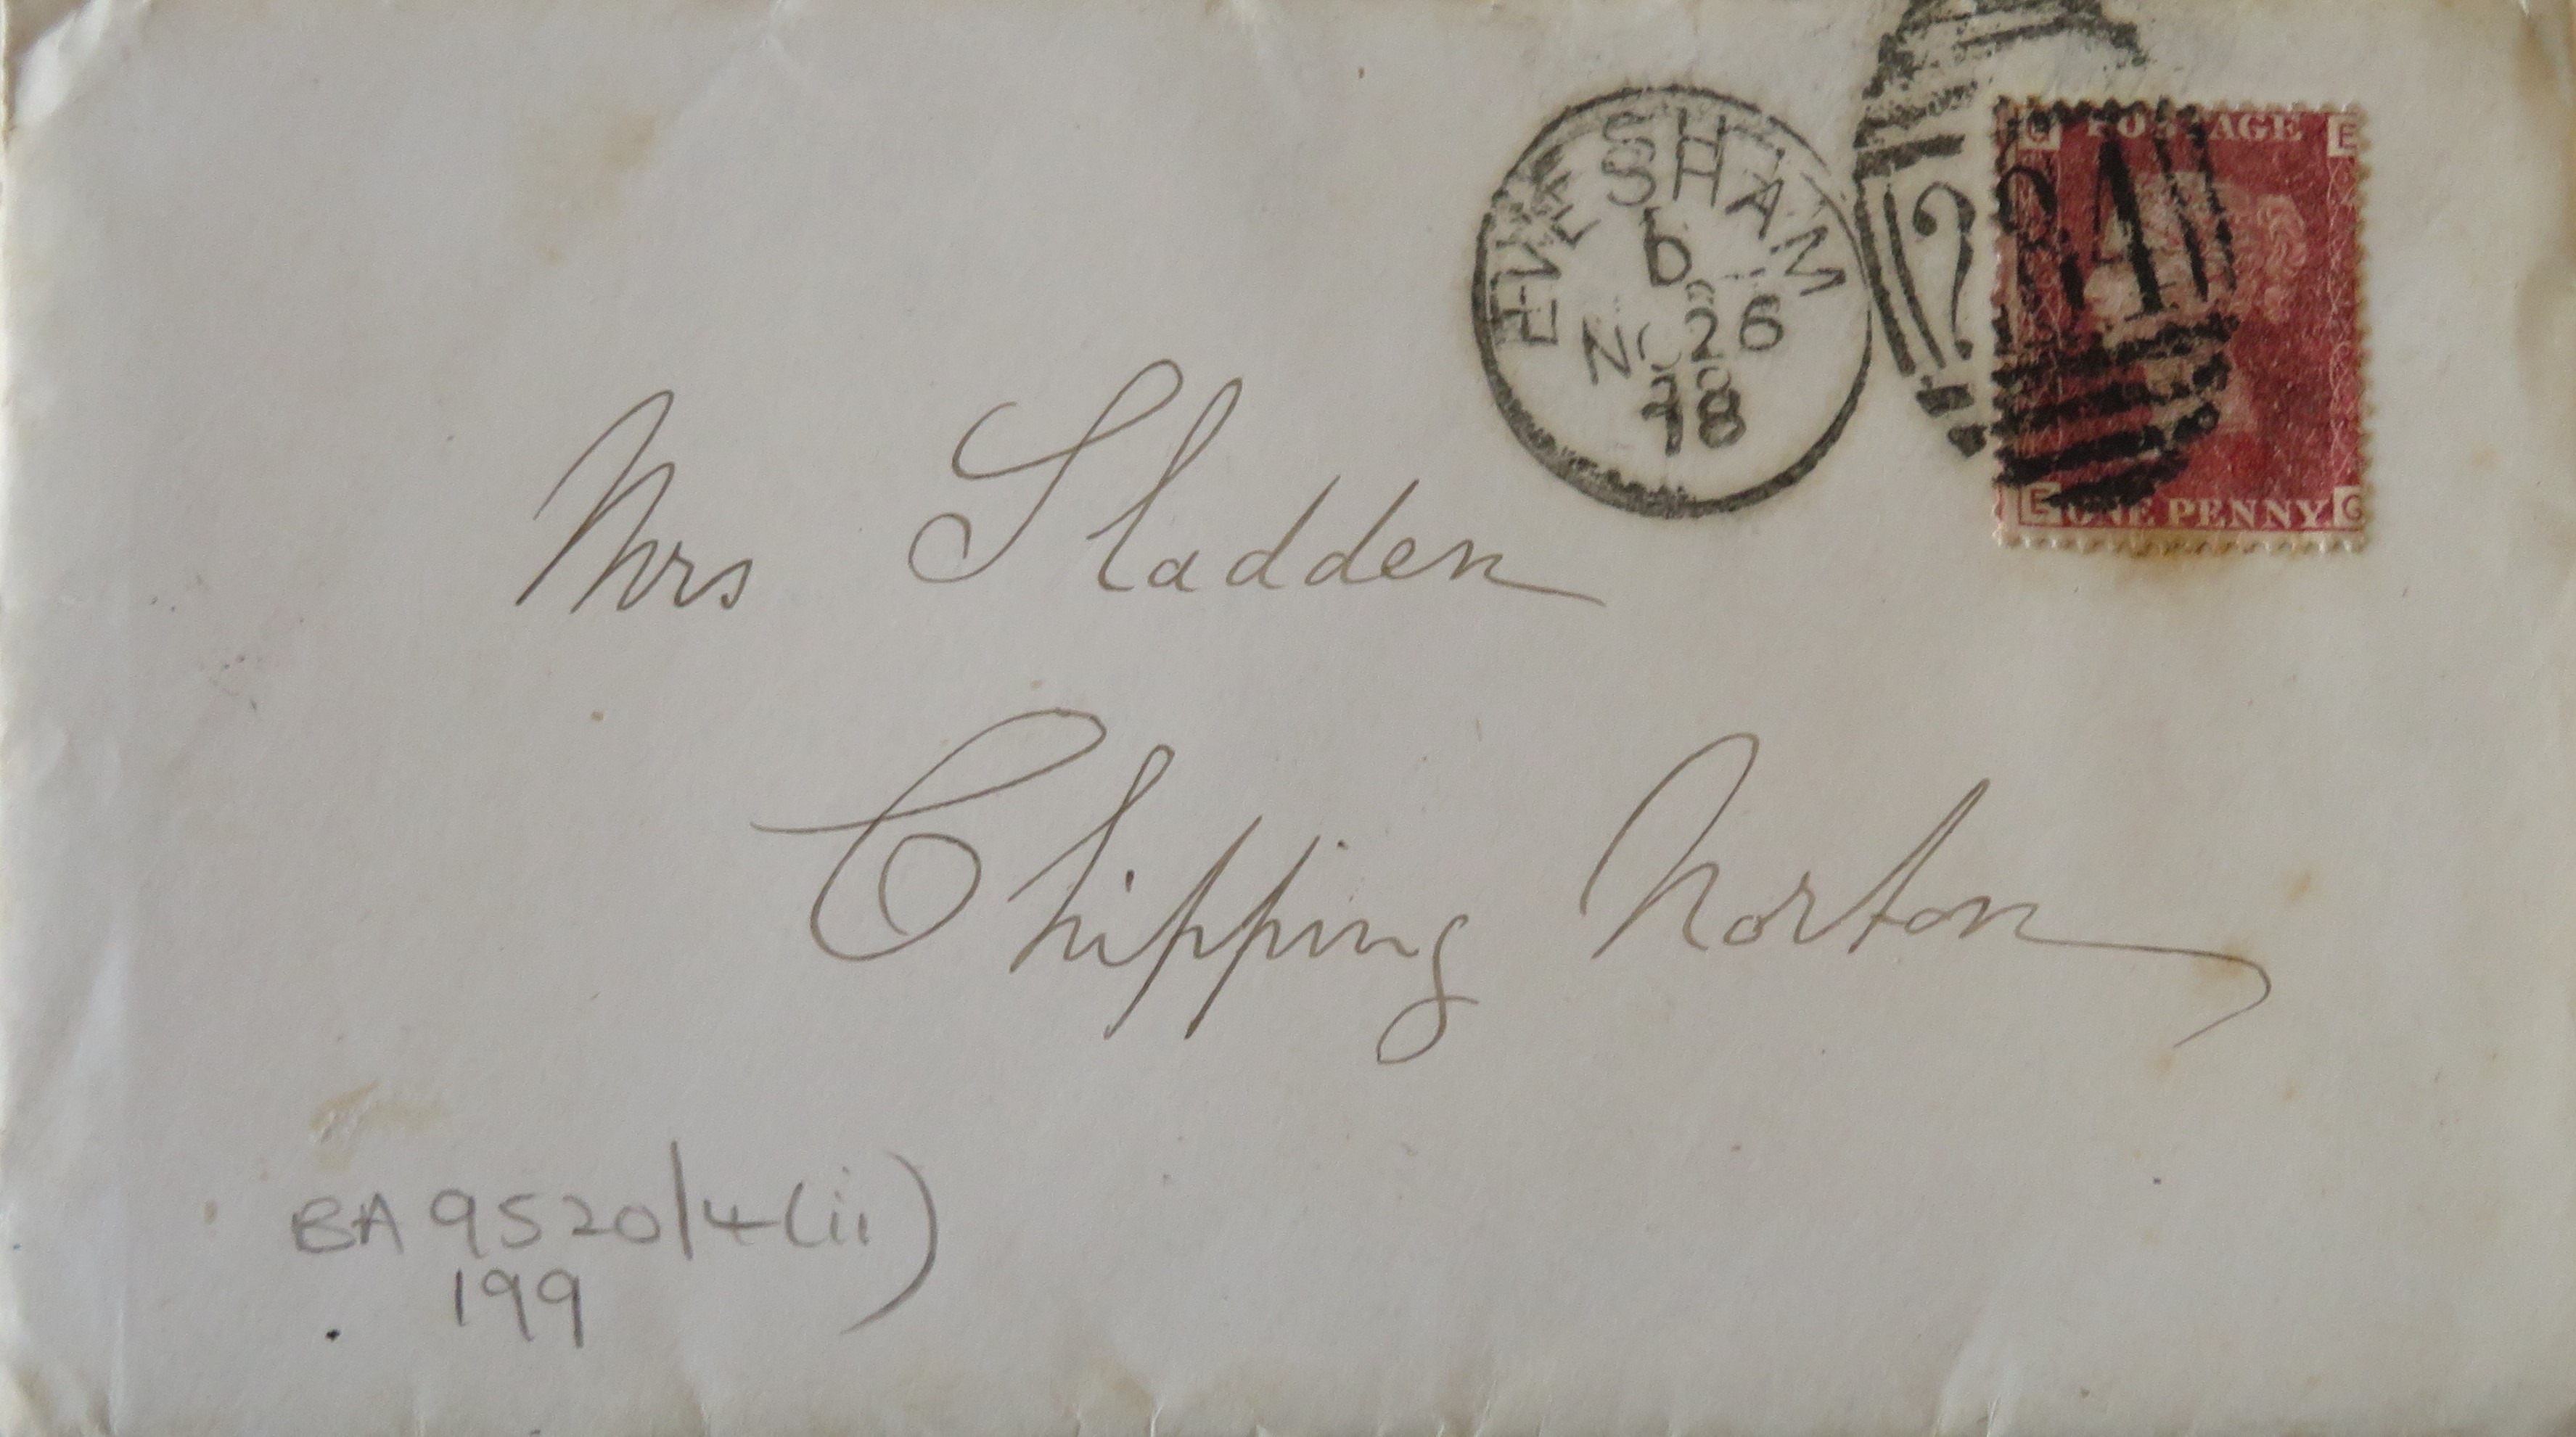 EVESHAM
D
NO 26
78
284
G POSTAGE E
E ONE PENNY G
Mrs Sladden
Chipping Norton
BA 9520/4(ii)
199